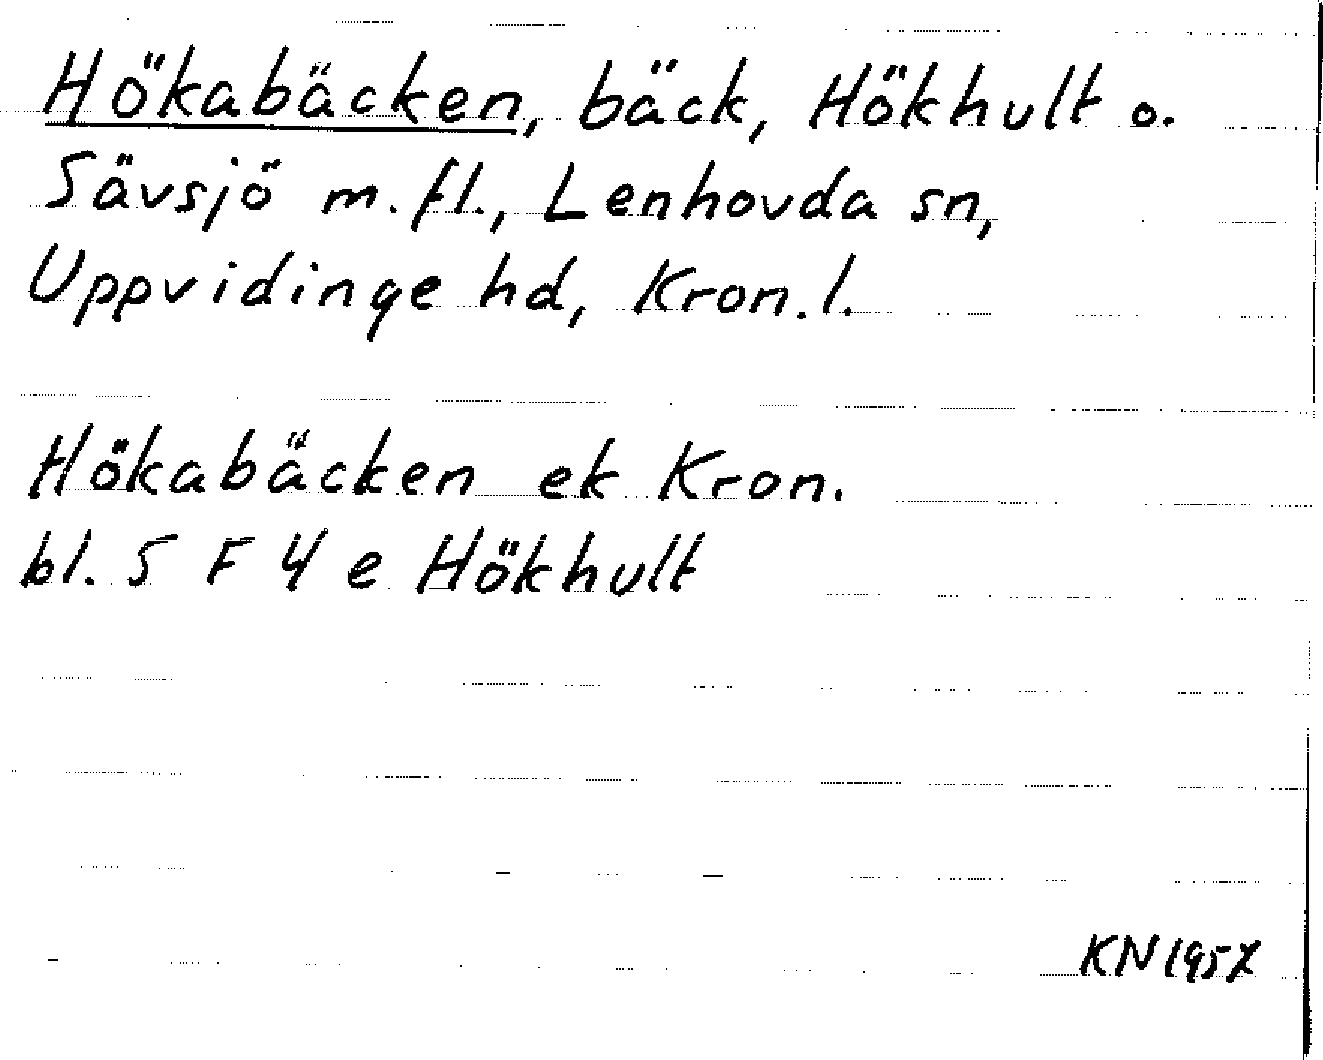 Hökabäcken, bäck, Hökhult o.
Sävsjö m.fl., Lenhovda sn,
Uppvidinge hd, Kron.l.
Hökabäcken ek Kron.
bl. 5 F 4 e Hökhult
KN 1957